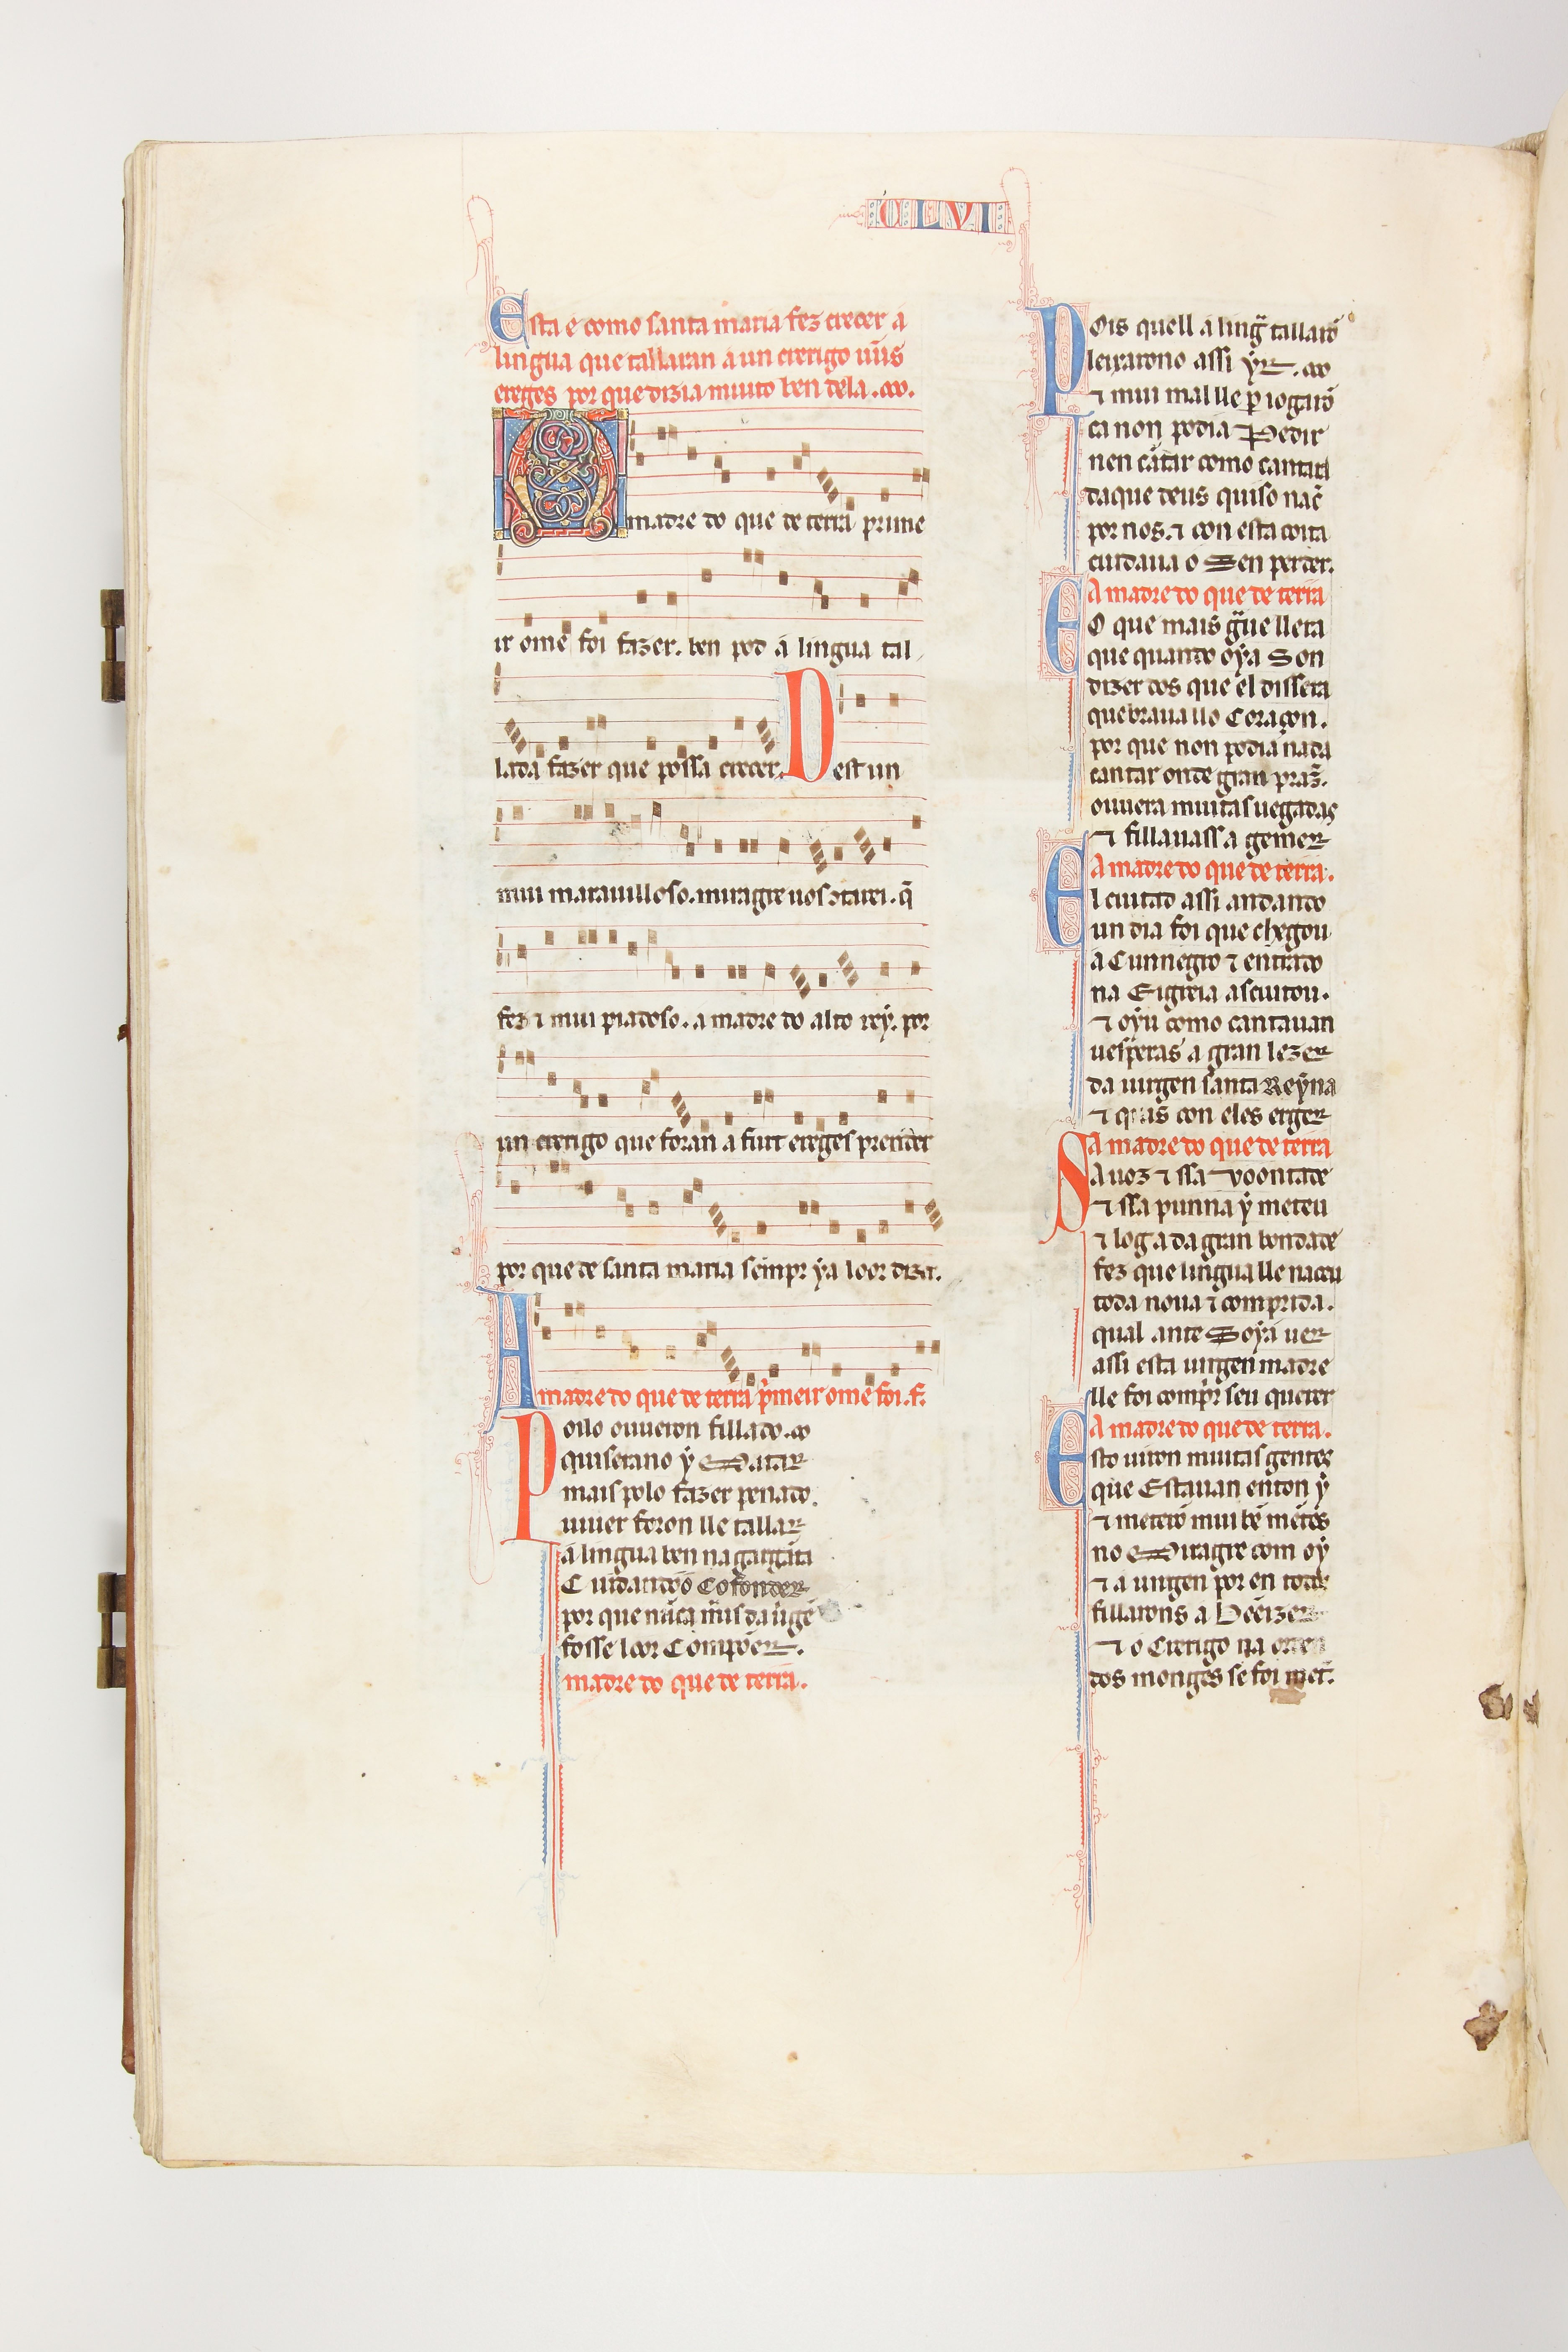 CLVI
Esta e como santa maria fez crecer a
lingua que tallaran a un crerigo ũus
ereges por que dizia muito ben dela. ꝏ.
A madre do que de terra prime
ir ome foi fazer. ben pod a lingua tal
lada fazer que possa crecer. Dest un
mui marauilloso. miragre uos ↄtarei. q̃
fez ⁊ mui piadoso. a madre do alto rey. por
un crerigo que foran a furt ereges prender
por que de santa maria sempr ya loor dizer.
A madre do que de terra pͥmeir ome foi. f.
Poilo ouueron fillado. ꝏ
quiserano ẏ Matar
mais polo fazer penado.
uiuer foron lle tallar
a lingua ben na garganta
Cuidandoo Cofonder
por que nũca mais da uͥgẽ
fosse loor Compõer.
madre do que de terra.
Pois quell a ling̃ tallarõ
leixarono assi ẏr. ꝏ
⁊ mui mal lle ꝑ iogarõ
ca non podia Pedir
nen cãtar como cantara
daque deus quiso nac̃
por nos. ⁊ con esta coita
cuidaua o Sen perder.
A madre do que de terra
EO que mais g̃ue llera
que quando oẏa Son
dizer dos que el dissera
quebraua llo Coraçon.
por que non podia nada
cantar onde gran praz̃.
ouuera muitas uegadas
⁊ fillauass a gemer
A madre do que de terra.
El cuitad assi andando
un dia foi que chegou
a Cunnegro ⁊ entrãdo
na Eigreia ascuitou.
⁊ oẏu como cantauan
uesperas a gran lezer
da uirgen santa Reẏna
⁊ quis con eles erger
A madre do que de terra
Sa uoz ⁊ ssa voontade
⁊ ssa punna ẏ meteu
⁊ log a da gran bondade
fez que lingua lle naceu
toda noua ⁊ comprida.
qual ante Soẏa uer
assi esta uirgen madre
lle foi comprͥ seu querer
A madre do que de terra.
Esto uiron muitas gentes
que Estauan enton ẏ
⁊ meterõ mui bẽ mẽtes
no Miragre com oẏ
⁊ a uirgen por en todos
fillarons a Bẽeizer
⁊ o Crerigo na orden
dos monges se foi met̃.